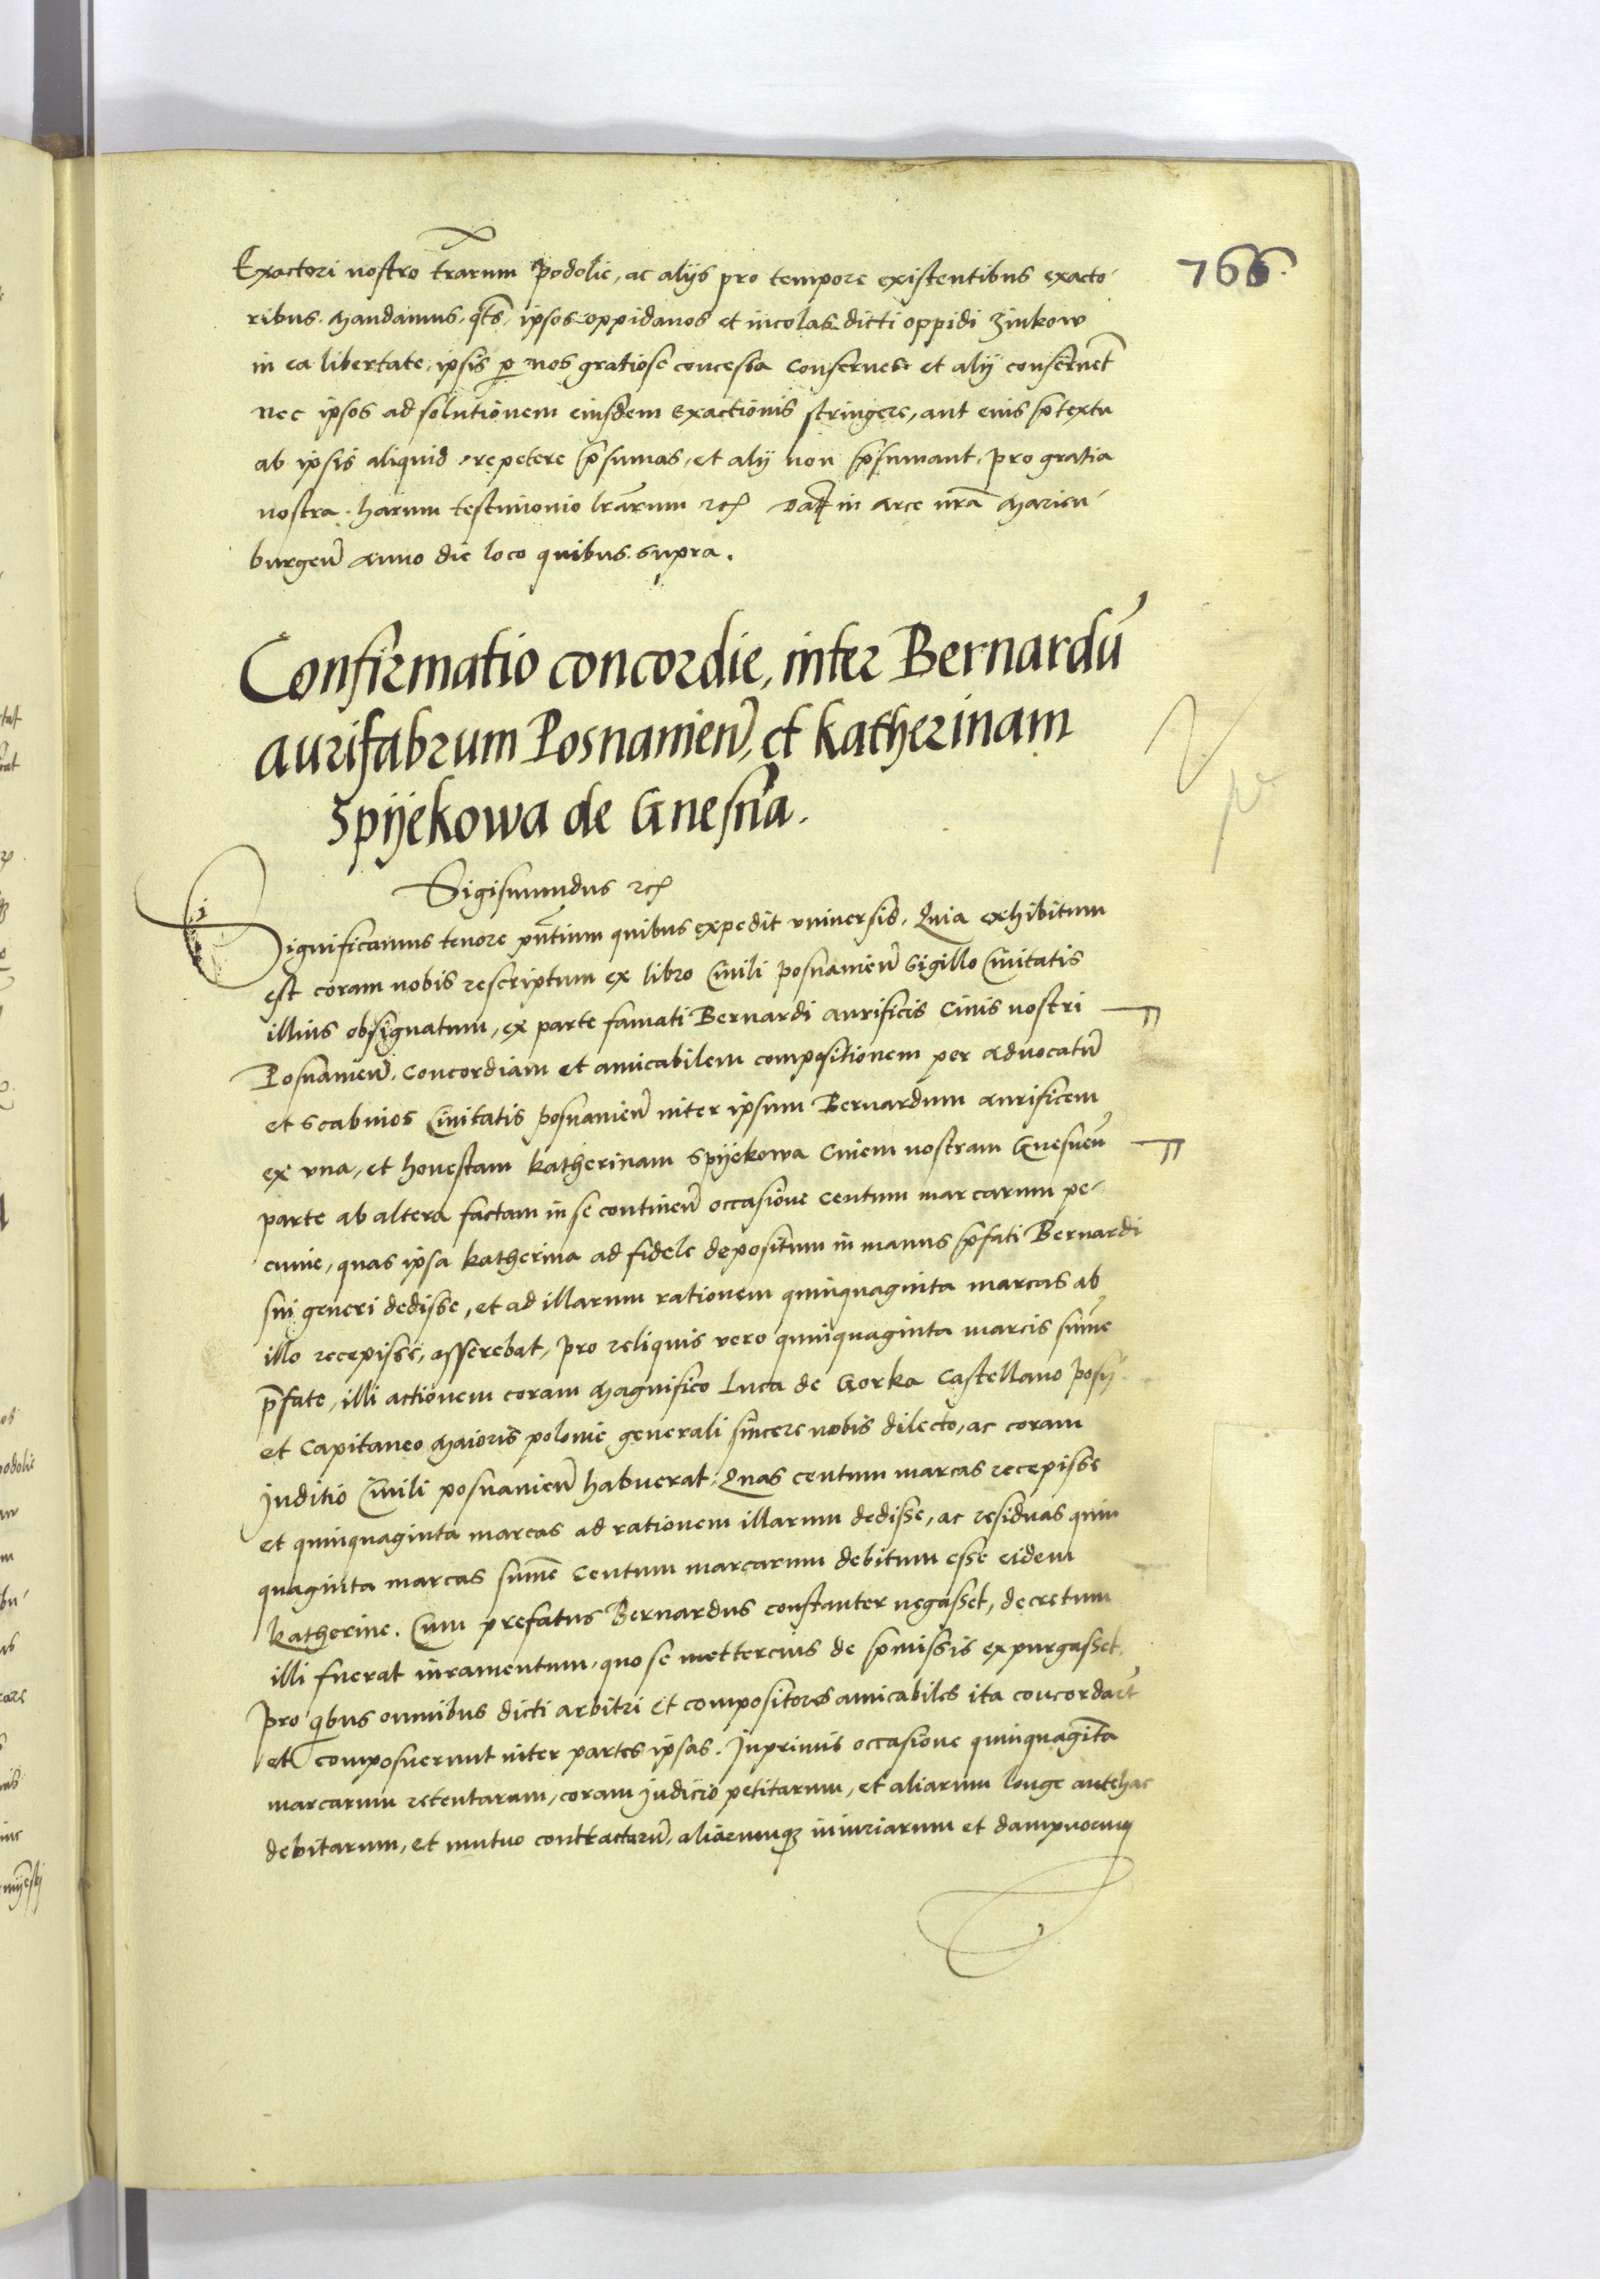 766.
Exactori nostro tr̃arum Podolie, ac alijs pro tempore existentibus exacto
ribus. Mandamus, qt̃s, ipsos oppidanos et incolas dicti oppidi Zinkow
in ea libertate, ipsis ꝑ nos gratiose concessa conserves et alij conservet̃
nec ipsos ad solutionem eiusdem exactionis stringere, aut eius p̃textu
ab ipsis aliquid repetere p̃sumas, et alij non p̃sumant, pro gratia
nostra. harum testimonio lr̃arum etc̃ Dat̃ in Arce nr̃a Marien
burgen̄ Anno die loco quibus supra.
Confirmatio concordie, inter Bernardū
aurifabrum Posnanien̄, et Katherinam
Spijekowa de Gnesna.
Sigismundus etc̃
Significamus tenore pn̄tium quibus expedit universis. Quia exhibitum
est coram nobis rescriptum ex libro Civili posnanien̄ Sigillo Civitatis
illius obsignatum, ex parte famati Bernardi aurificis Civis nostri
Posnanien̄. Concordiam et amicabilem compositionem per advocatum̄
et scabinos Civitatis posnanien̄ inter ipsum Bernardum aurificem
ex una, et honestam Katherinam Spijekowa Civem nostram Gnesnen̄
parte ab altera factam in se continen̄ occasione centum marcarum pe
cunie, quas ipsa Katherina ad fidele depositum in manus p̃fati Bernardi
sui generi dedisse, et ad illarum rationem quinquaginta marcas ab
illo recepisse, asserebat, pro reliquis vero quinquaginta marcis sum̄e
p̃fate, illi actionem coram Magnifico Luca de Gorka Castellano Posn̄
et Capitaneo Maioris polonie generali sincere nobis dilecto, ac coram
Juditio Civili posnanien̄ habuerat. Quas centum marcas recepisse
et quinquaginta marcas ad rationem illarum dedisse, ac residuas quin
quaginta marcas sum̄e Centum marcarum debitum esse eidem
Katherine. Cum prefatus Bernardus constanter negasset, decretum
illi fuerat iuramentum, quo se mettercius de p̃missis expurgasset.
Pro qibus omnibus dicti arbitri et compositores amicabiles ita concordaru̅t
et composuerunt inter partes ipsas. Inprimis occasione quinquaginta
marcarum retentarum, coram Judicio petitarum, et aliarum longe antehac
debitarum, et mutuo contractarū, aliarumqꝫ iniuriarum et dampnorum